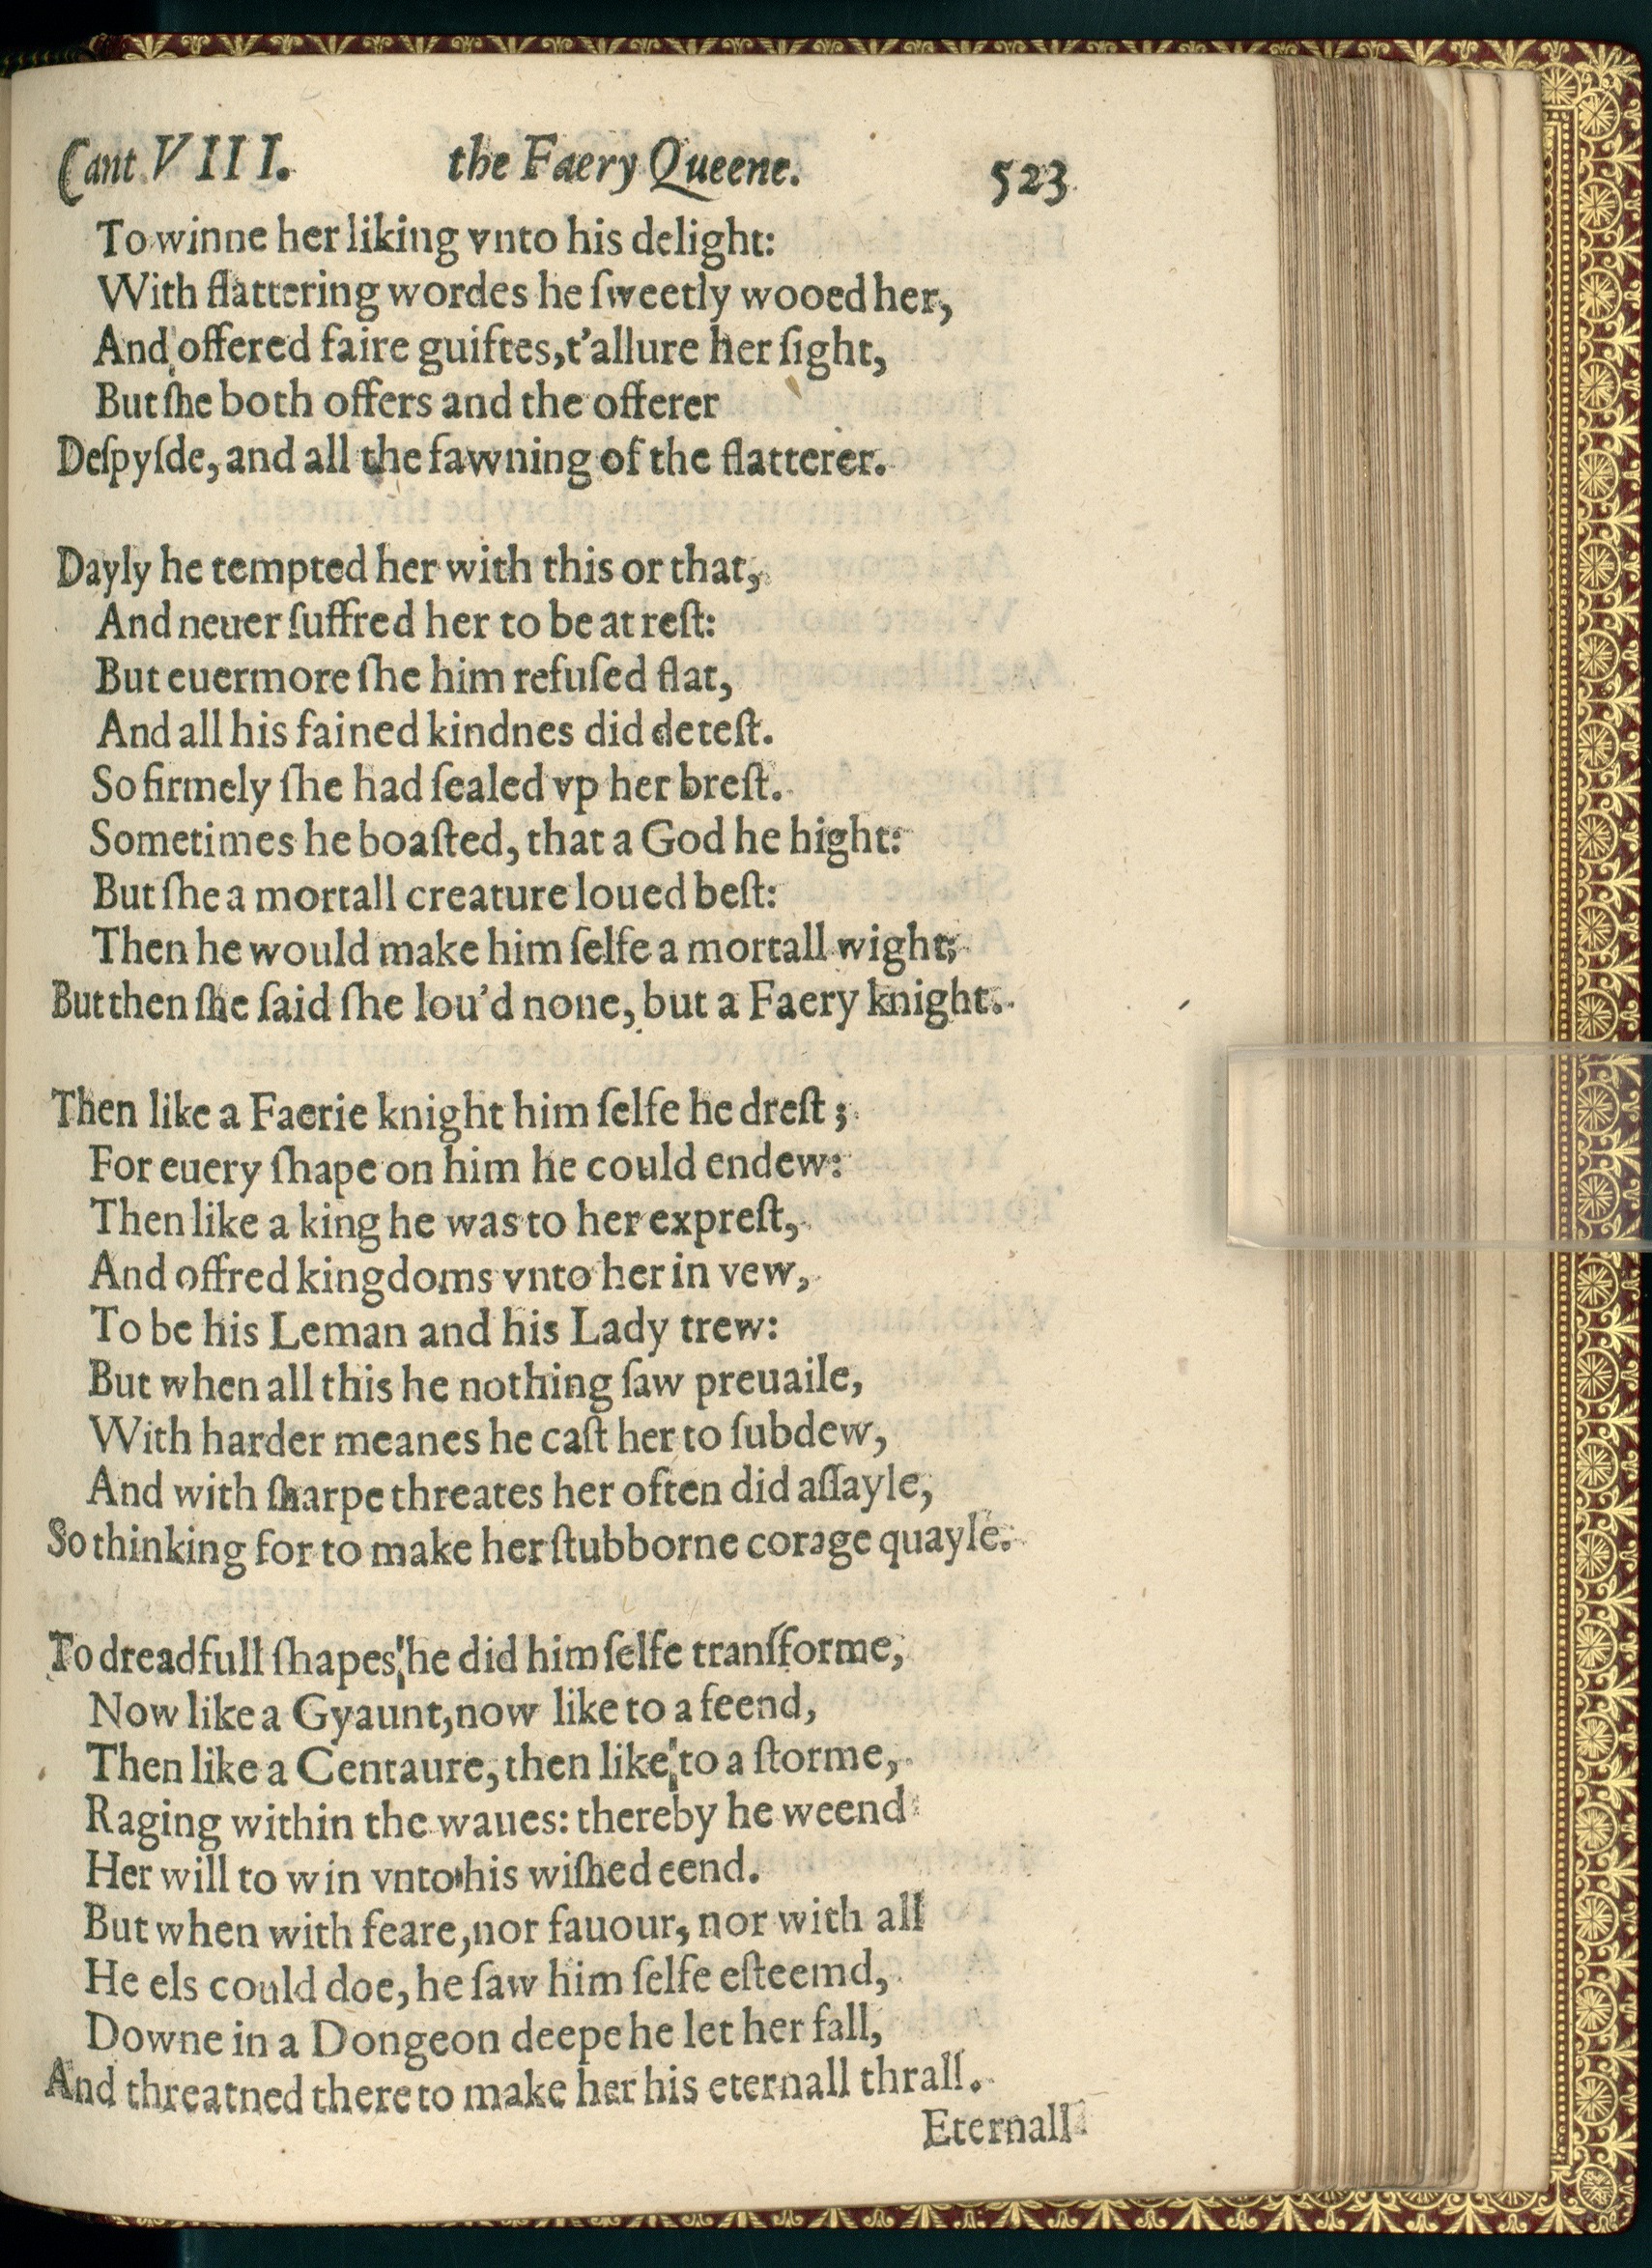 Cant. VIII. the Faery Queene. 523
To winne her liking vnto his delight:
With flattering wordes he ſweetly wooed her,
And offered faire guiftes, t'allure her ſight,
But ſhe both offers and the offerer
Deſpyſde, and all the fawning of the flatterer.
Dayly he tempted her with this or that,
And neuer ſuffred her to be at reſt:
But euermore ſhe him refuſed flat,
And all his fained kindnes did deteſt.
So firmely ſhe had ſealed vp her breſt.
Sometimes he boaſted, that a God he hight:
But ſhe a mortall creature loued beſt:
Then he would make him ſelfe a mortall wight;
But then ſhe ſaid ſhe lou'd none, but a Faery knight.
Then like a Faerie knight him ſelfe he dreſt;
For euery ſhape on him he could endew:
Then like a king he was to her expreſt,
And offred kingdoms vnto her in vew,
To be his Leman and his Lady trew:
But when all this he nothing ſaw preuaile,
With harder meanes he caſt her to ſubdew,
And with ſharpe threates her often did aſſayle,
So thinking for to make her ſtubborne corage quayle.
To dreadfull ſhapes he did him ſelfe tranſforme,
Now like a Gyaunt, now like to a feend,
Then like a Centaure, then like to a ſtorme,
Raging within the waues: thereby he weend
Her will to win vnto his wiſhed eend.
But when with feare, nor fauour, nor with all
He els could doe, he ſaw him ſelfe eſteemd,
Downe in a Dongeon deepe he let her fall,
And threatned there to make her his eternall thrall.
Eternall